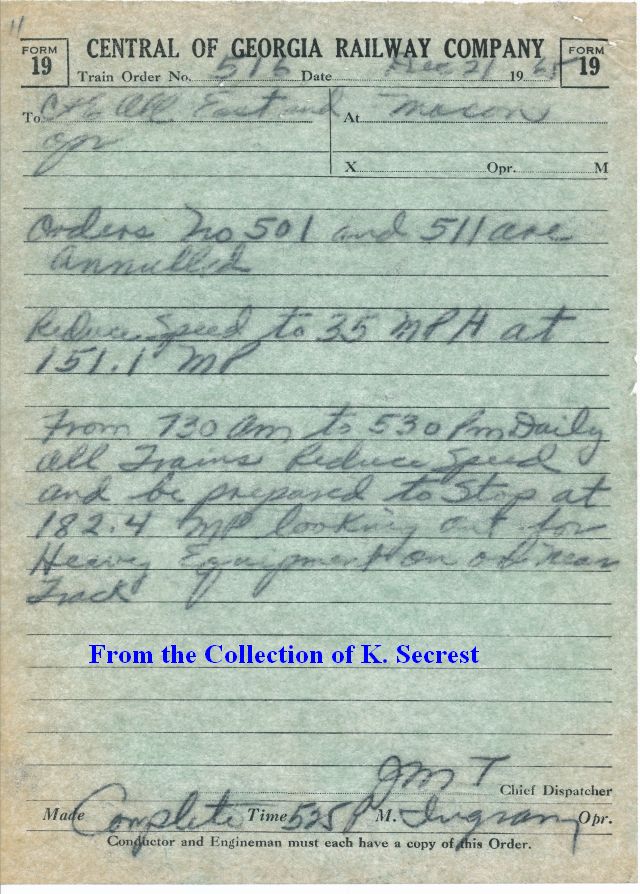 11
FORM 19
CENTRAL OF GEORGIA RAILWAY COMPANY
FORM 19
Train Order No. 516 Date Dec 21 19 65
To C+E All East and At Macon
Opr
X Opr. M
Orders No 501 and 511 are
annulled
Reduce Speed to 35 MPH at
151.1 MP
From 730 am to 530 Pm Daily
all Trains Reduce Speed
and be prepared to Stop at
182.4 MP looking out for
Heavy Equipment on or near
Track
From the Collection of K. Secrest
JMT
Chief Dispatcher
Made Complete Time 525 P M. Ingram Opr.
Conductor and Engineman must each have a copy of this Order.